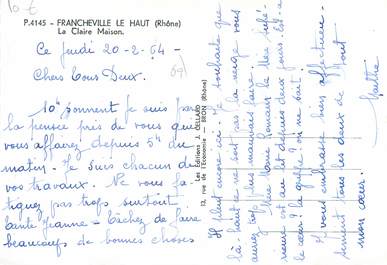 10 €
P.4145 - FRANCHEVILLE LE HAUT (Rhône)
La Claire Maison.
Ce Jeudi 20-2-64-
Chers Tous Deux.
10h sonnent je suis par
la pensée près de vous que
vous affairez depuis 5h du
matin. Je suis chacun de
vos travaux. Ne vous fa-
tiguez pas trop surtout
tante Jeanne - Tâchez de faire
beaucoup de bonnes choses
Les Editions J. CELLARD
13, rue de l'Economie - BRON (Rhône)
Il pleut encore ici. Je souhaite que
là-haut ce ne soit pas la neige vous
aurez trop mauvais faire.
Mme Bonne Maman la Mère
est au lit depuis deux jours. Est-ce
le cœur? la grippe? on ne sait.
Je vous embrasse bien affectueu-
sement tous les deux de tout
mon cœur.